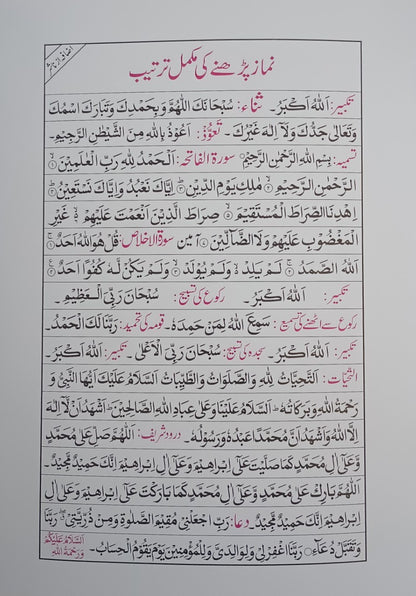 نماز پڑھنے کی مکمل ترتیب
تکبیر: اَللهُ اَكْبَرُ۔ ثناء: سُبْحَانَكَ اللّٰهُمَّ وَبِحَمْدِكَ وَتَبَارَكَ اسْمُكَ
وَتَعَالٰى جَدُّكَ وَلَآ اِلٰهَ غَيْرُكَ۔ تعوّذ: اَعُوْذُ بِاللهِ مِنَ الشَّيْطٰنِ الرَّجِيْمِ۔
تسمیہ: بِسْمِ اللهِ الرَّحْمٰنِ الرَّحِيْمِ سورۃ الفاتحہ: اَلْحَمْدُ لِلهِ رَبِّ الْعٰلَمِيْنَ
الرَّحْمٰنِ الرَّحِيْمِ مٰلِكِ يَوْمِ الدِّيْنِ اِيَّاكَ نَعْبُدُ وَاِيَّاكَ نَسْتَعِيْنُ
اِهْدِنَا الصِّرَاطَ الْمُسْتَقِيْمَ صِرَاطَ الَّذِيْنَ اَنْعَمْتَ عَلَيْهِمْ غَيْرِ
الْمَغْضُوْبِ عَلَيْهِمْ وَلَا الضَّآلِّيْنَ آمین سورۃ الاخلاص: قُلْ هُوَ اللهُ اَحَدٌ
اَللهُ الصَّمَدُ لَمْ يَلِدْ وَلَمْ يُوْلَدْ وَلَمْ يَكُنْ لَّهٗ كُفُوًا اَحَدٌ
تکبیر: اَللهُ اَكْبَرُ۔ رکوع کی تسبیح: سُبْحَانَ رَبِّيَ الْعَظِيْمِ۔
رکوع سے اٹھنے کی تسمیع: سَمِعَ اللهُ لِمَنْ حَمِدَهٗ۔ قومہ کی تحمید: رَبَّنَا لَكَ الْحَمْدُ۔
تکبیر: اَللهُ اَكْبَرُ۔ سجدہ کی تسبیح: سُبْحَانَ رَبِّيَ الْاَعْلٰى۔ تکبیر: اَللهُ اَكْبَرُ۔
التحیات: اَلتَّحِيَّاتُ لِلهِ وَالصَّلَوَاتُ وَالطَّيِّبَاتُ اَلسَّلَامُ عَلَيْكَ اَيُّهَا النَّبِيُّ وَ
رَحْمَةُ اللهِ وَبَرَكَاتُهٗ اَلسَّلَامُ عَلَيْنَا وَعَلٰى عِبَادِ اللهِ الصَّالِحِيْنَ اَشْهَدُ اَنْ لَّآ اِلٰهَ
اِلَّا اللهُ وَاَشْهَدُ اَنَّ مُحَمَّدًا عَبْدُهٗ وَرَسُوْلُهٗ۔ درود شریف: اَللّٰهُمَّ صَلِّ عَلٰى مُحَمَّدٍ
وَّعَلٰى اٰلِ مُحَمَّدٍ كَمَا صَلَّيْتَ عَلٰى اِبْرَاهِيْمَ وَعَلٰى اٰلِ اِبْرَاهِيْمَ اِنَّكَ حَمِيْدٌ مَّجِيْدٌ۔
اَللّٰهُمَّ بَارِكْ عَلٰى مُحَمَّدٍ وَّعَلٰى اٰلِ مُحَمَّدٍ كَمَا بَارَكْتَ عَلٰى اِبْرَاهِيْمَ وَعَلٰى اٰلِ
اِبْرَاهِيْمَ اِنَّكَ حَمِيْدٌ مَّجِيْدٌ۔ دعا: رَبِّ اجْعَلْنِيْ مُقِيْمَ الصَّلٰوةِ وَمِنْ ذُرِّيَّتِيْ رَبَّنَا
وَتَقَبَّلْ دُعَآءِ رَبَّنَا اغْفِرْ لِيْ وَلِوَالِدَيَّ وَلِلْمُؤْمِنِيْنَ يَوْمَ يَقُوْمُ الْحِسَابُ۔ اَلسَّلَامُ عَلَيْكُمْ
وَرَحْمَةُ اللهِ